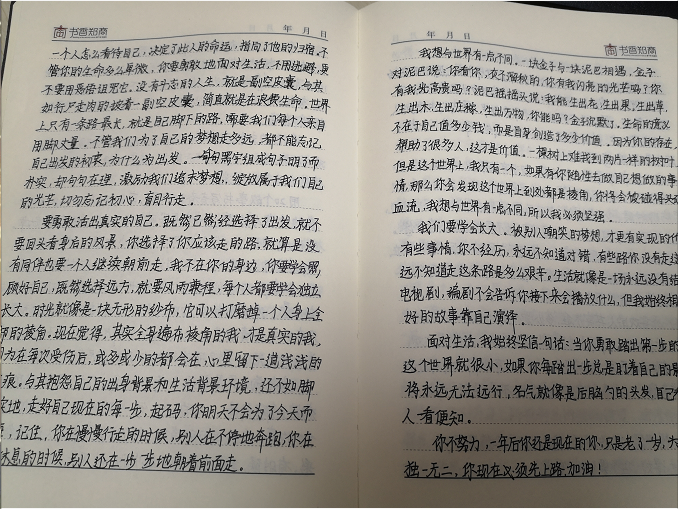 书香知商
年 月 日
一个人怎么看待自己，决定了此人的命运，指向了他的归宿。不
管你的生命多么卑微，你要勇敢地面对生活，不用逃避，更
不要用恶语诅咒它。没有斗志的人生，就是一副空皮囊，与其
如行尸走肉的披着一副空皮囊，简直就在浪费生命。世界
上只有一条路最长，就是自己脚下的路，需要我们每个人亲自
用脚丈量。不管我们为了自己的梦想走多远，都不能忘记
自己出发的初衷，为什么为出发。一句句黑字组成句子明了而
朴实，却句句在理，激励我们追求梦想，绽放属于我们自己
的光芒，切勿忘记初心，盲目行走。
要勇敢活出真实的自己。既然已然经选择了出发，就不
要回头看身后的风景，你选择了你应该走的路，就算是没
有同伴也要一个人继续朝前走，我不在你的身边，你要学会照
顾好自己，既然选择远方，就要风雨兼程，每个人都要学会独立
长大。时光就像是一块无形的纱布，它可以打磨掉一个人身上全
部的棱角。现在觉得，其实全身遍布棱角的我，才是真实的我，
因为在每次受伤后，或多或少的都会在心里留下一道浅浅的
痕。与其抱怨自己的出身背景和生活背景环境，还不如脚
实地，走好自己现在的每一步，起码，你明天不会为了今天而
，记住，你在慢慢行走的时候，别人在不停地奔跑，你在
休息的时候，别人还在一步一步地朝着前面走。
年 月 日
书香知商
我想与世界有一点不同。一块金子与一块泥巴相遇，金子
对泥巴说：你看你，灰不溜秋的，你有我闪亮的光芒吗？你
有我光高贵吗？泥巴摇摇头说：我能生出花，生出果，生出草，
生出木，生出庄稼，生出万物，你能吗？金子沉默了。生命的意义
不在于自己值多少钱，而是自身创造了多少价值。因为你的存在，
帮助了很多人，这才是价值。一棵树上难找到两片一样的树叶
但是这个世界上，我只有一个，如果有你随性去做自己想做的事
情，那么你会发现这个世界上到处都是棱角，你将会被碰得头破
血流，我想与世界有一点不同，所以我必须坚强。
我们要学会长大。被别人嘲笑的梦想，才更有实现的
有些事情，你不经历，永远不知道对错，有些路你没有走过
远不知道走这条路是多么艰辛。生活就像是一场永远没有结
电视剧，编剧不会告诉你接下来会播放什么，但我始终相
好的故事靠自己演绎。
面对生活，我始终坚信一句话：当你勇敢踏出第一步的
这个世界就很小，如果你每踏出一步总是盯着自己的
将永远无法远行，名气就像是后脑勺的头发，自己
人一看便知。
你不努力，一年后你还是现在的你，只是老了一岁，
独一无二，你现在必须先上路，加油！